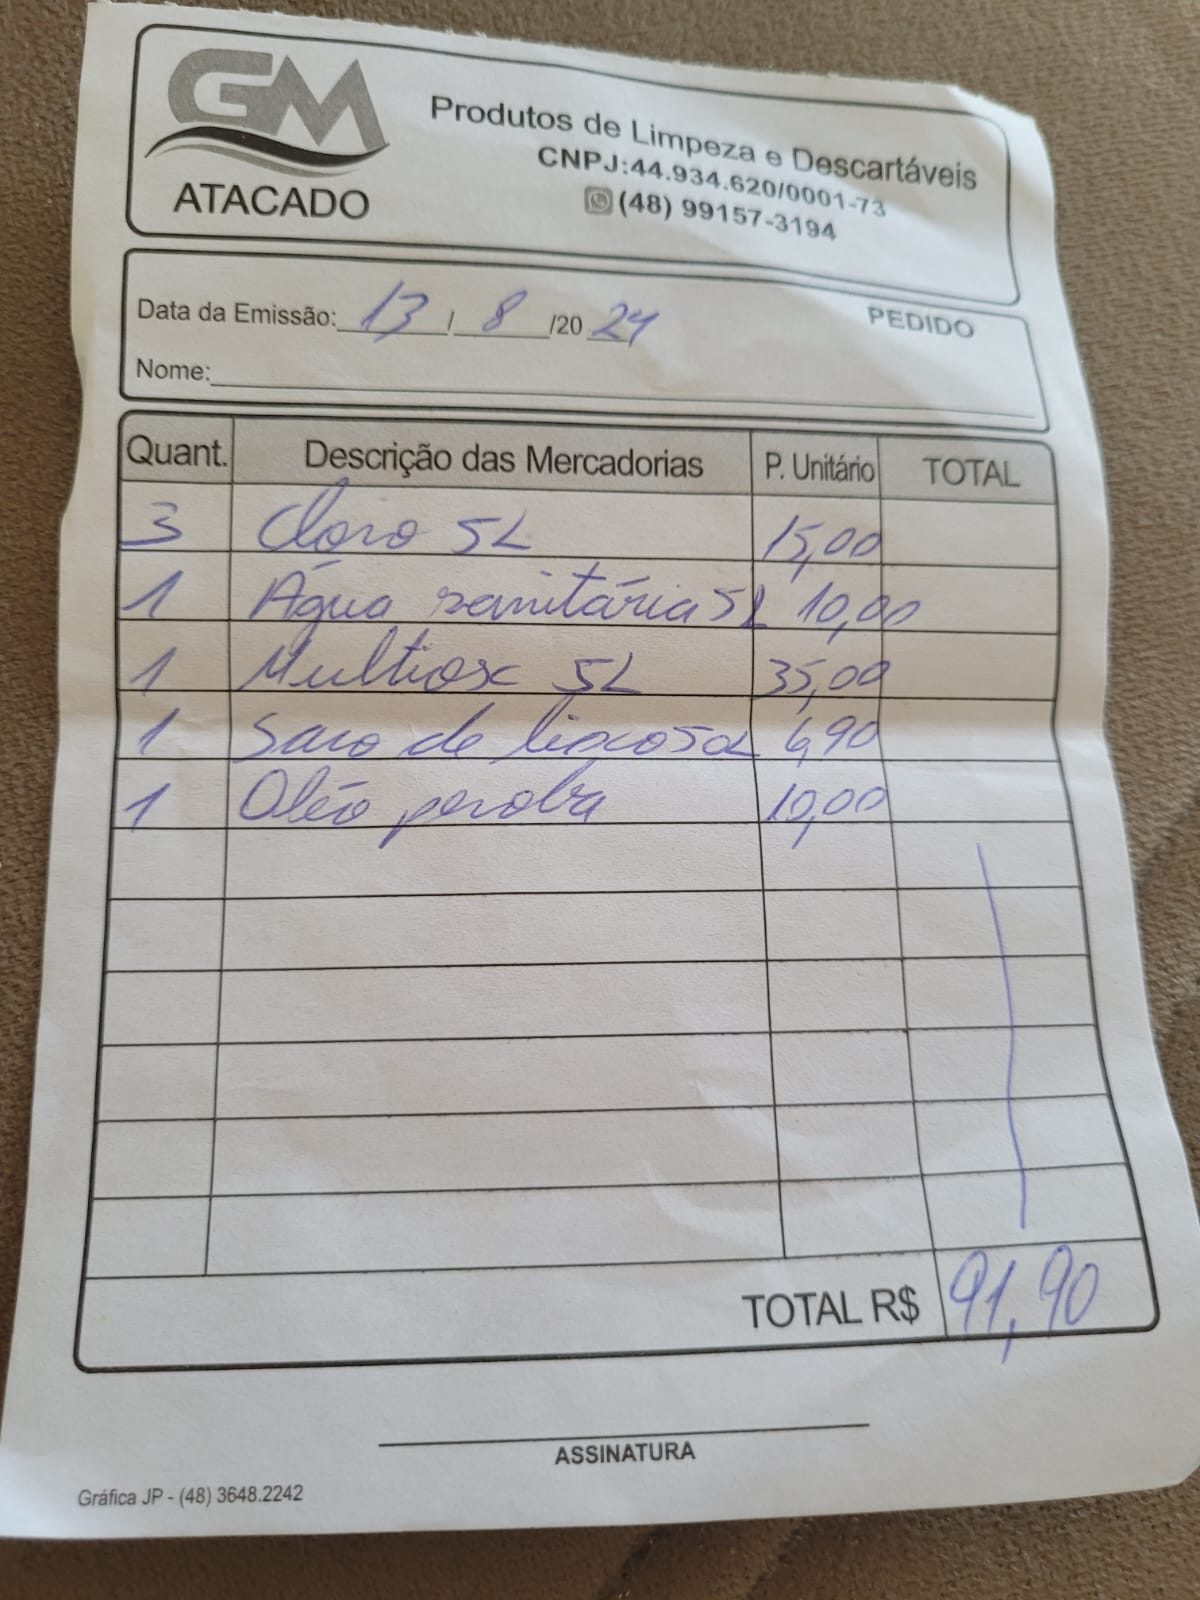 GM
ATACADO
Produtos de Limpeza e Descartáveis
CNPJ:44.934.620/0001-73
(48) 99157-3194
Data da Emissão: 13 / 8 /20 24
PEDIDO
Nome:
Quant. Descrição das Mercadorias P. Unitário TOTAL
3 Cloro 5L 15,00
1 Água sanitária 5L 10,00
1 Multiosc 5L 35,00
1 Saco de lixo 50L 6,90
1 Oléo peroba 10,00
TOTAL R$ 91,90
ASSINATURA
Gráfica JP - (48) 3648.2242